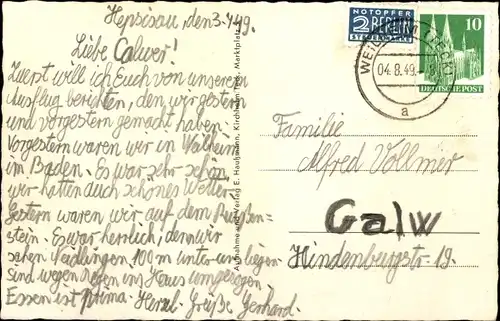 Hepsisau, den 3.
Liebe Calwer!
Zuerst will ich Euch von unserem
Ausflug berichten, den wir gestern
und vorgestern gemacht haben.
Vorgestern waren wir in
im Baden. Es war sehr schön
wir hatten auch schönes Wetter
Gestern waren wir auf dem Reußen-
stein. Es war herrlich, denn wir
sahen Neidlingen 100 m unter uns liegen.
sind wegen Regen ins Haus umgezogen
Essen ist prima. Herzl. Grüße Gerhard.
Aufnahme und Verlag E. Haußmann, Kirchheim Teck, Marktplatz
NOTOPFER
2 BERLIN
STEUERMARKE
WEILHEIM (TECK)
04.8.49.
a
10
DEUTSCHE POST
Familie
Alfred Vollmer
Calw
Hindenburgstr. 19.